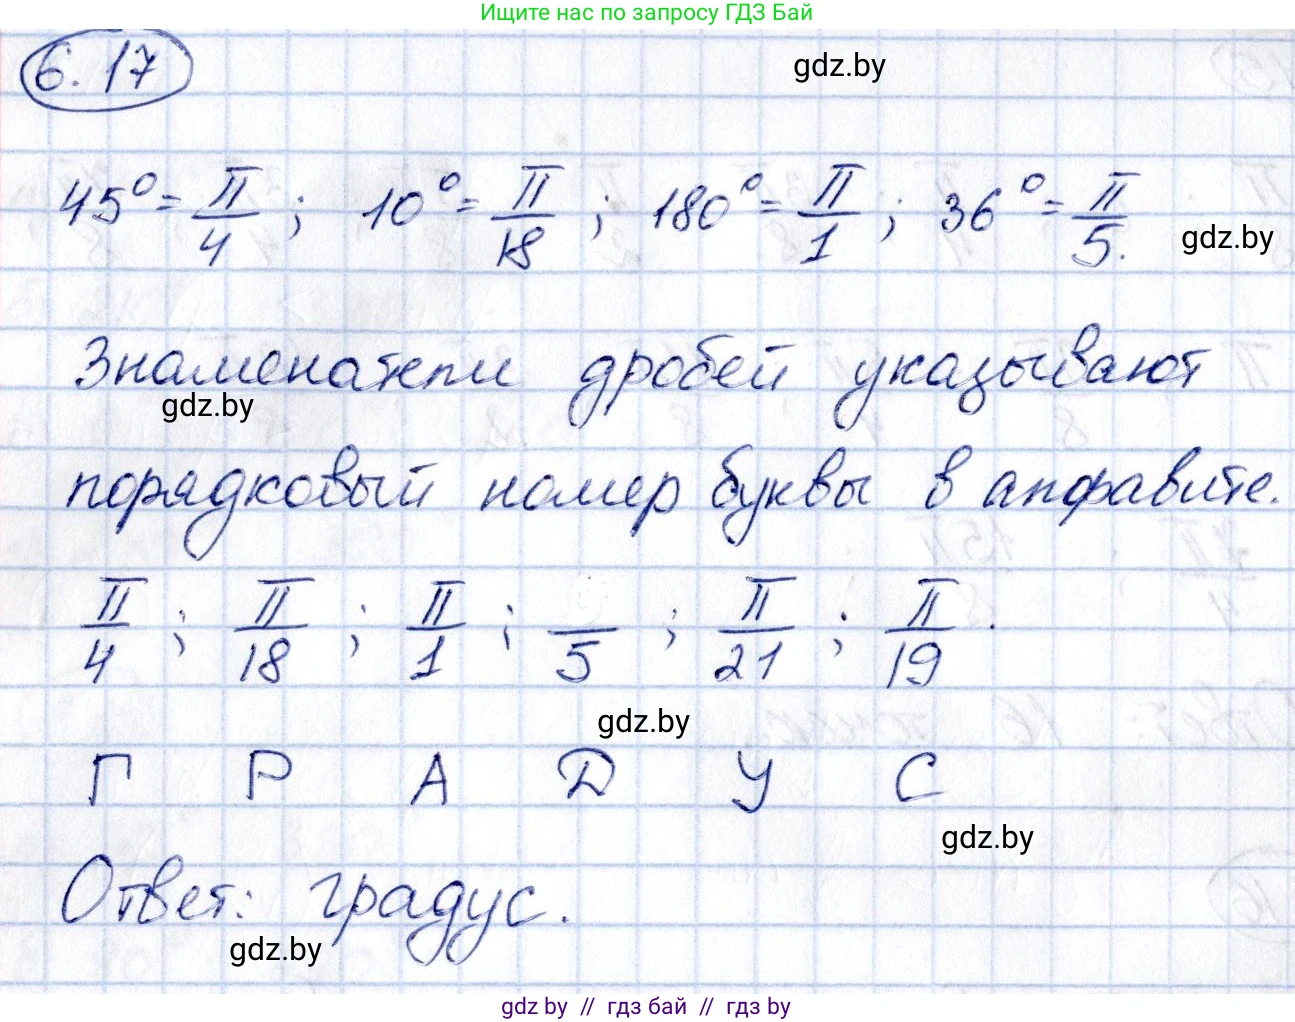 Ищите нас по запросу ГДЗ Бай
6.17
gdz.by
45° = π/4 ; 10° = π/18 ; 180° = π/1 ; 36° = π/5.
gdz.by
Знаменатели дробей указывают
gdz.by
порядковый номер буквы в алфавите.
π/4 ; π/18 ; π/1 ; /5 ; π/21 ; π/19 .
gdz.by
Г Р А Д У С
gdz.by
Ответ: градус.
gdz.by
gdz by // гдз бай // гдз by